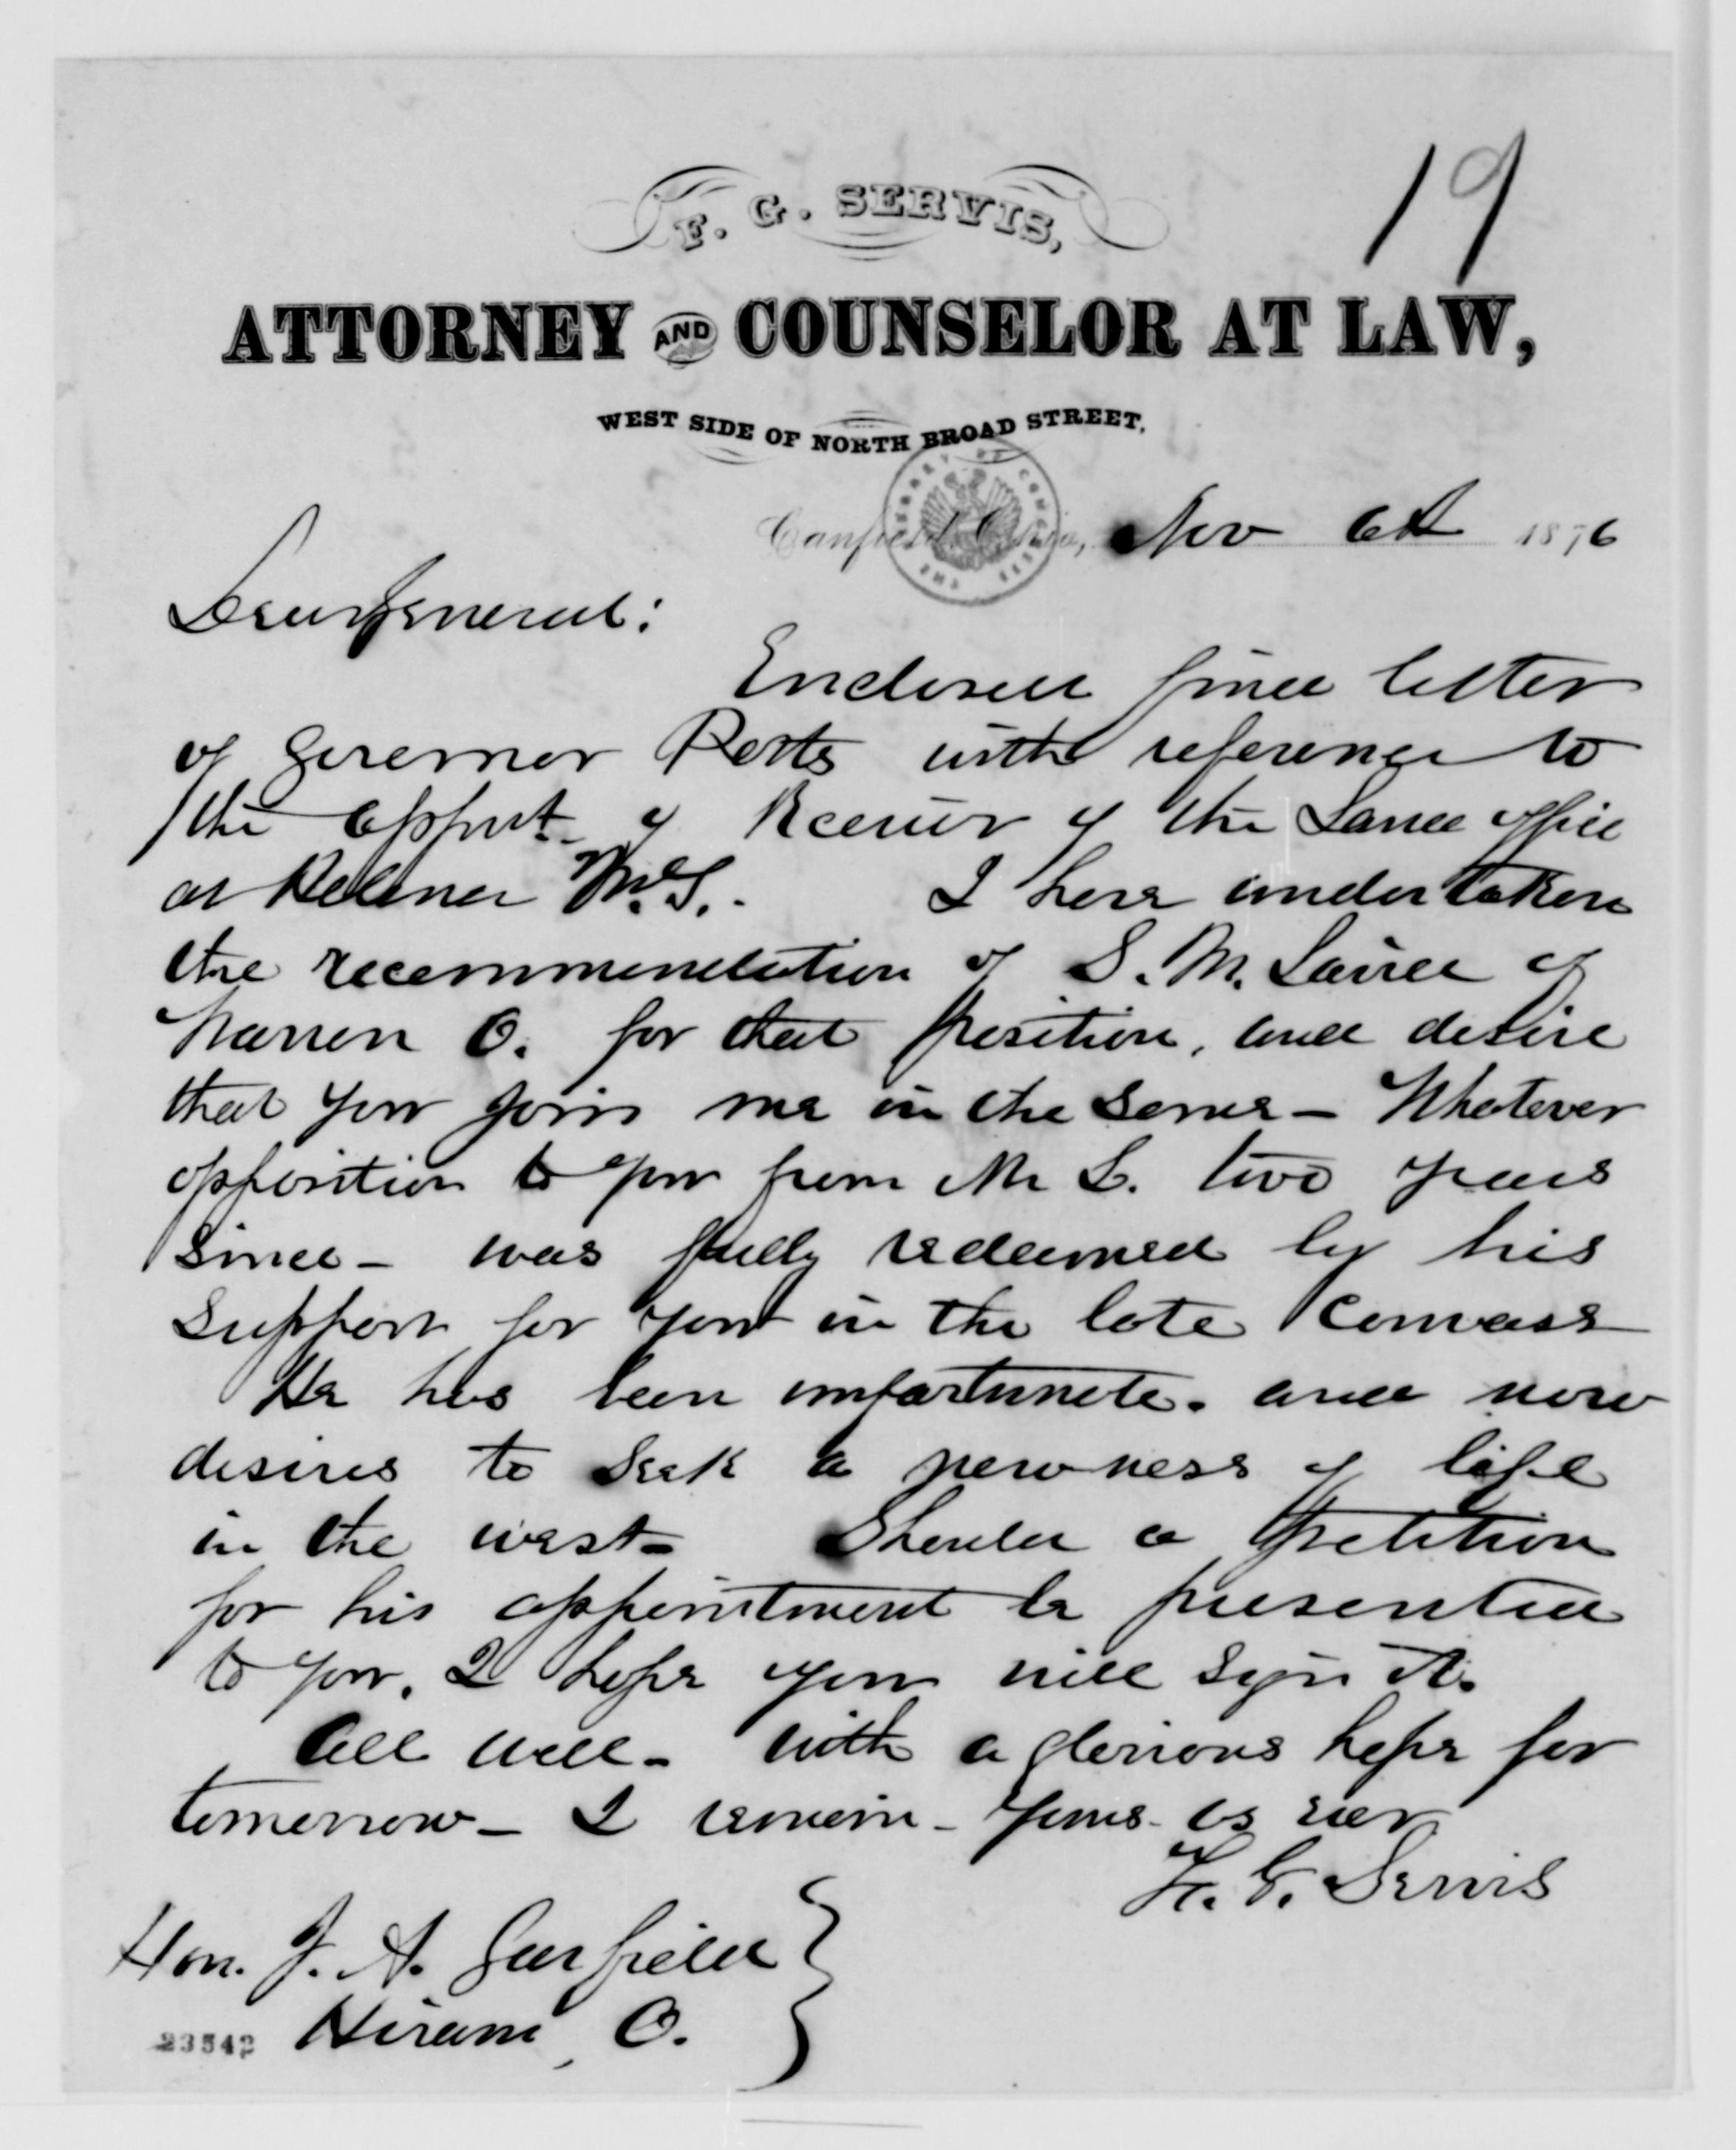 19
F. G. SERVIS,
ATTORNEY AND COUNSELOR AT LAW,
WEST SIDE OF NORTH BROAD STREET,
Canfield, Ohio, Nov 6th 1876
Dear General:
Enclosed find letter
of Governor Potts with reference to
the appmt of Receiver of the Land office
at Helena M.T. I have undertaken
the recommendation of S. M. Laird of
Warren O. for that position, and desire
that you join me in the same - Whatever
opposition to you from Mr L. two years
since - was fully redeemed by his
support for you in the late canvass
He has been unfortunate. and now
desires to seek a newness of life
in the west - Should a petition
for his appointment be presented
to you, I hope you will sign it.
All well - with a glorious hope for
tomorrow - I remain - Yours as ever
F. G. Servis
Hon. J. A. Garfield
Hiram, O.
23542